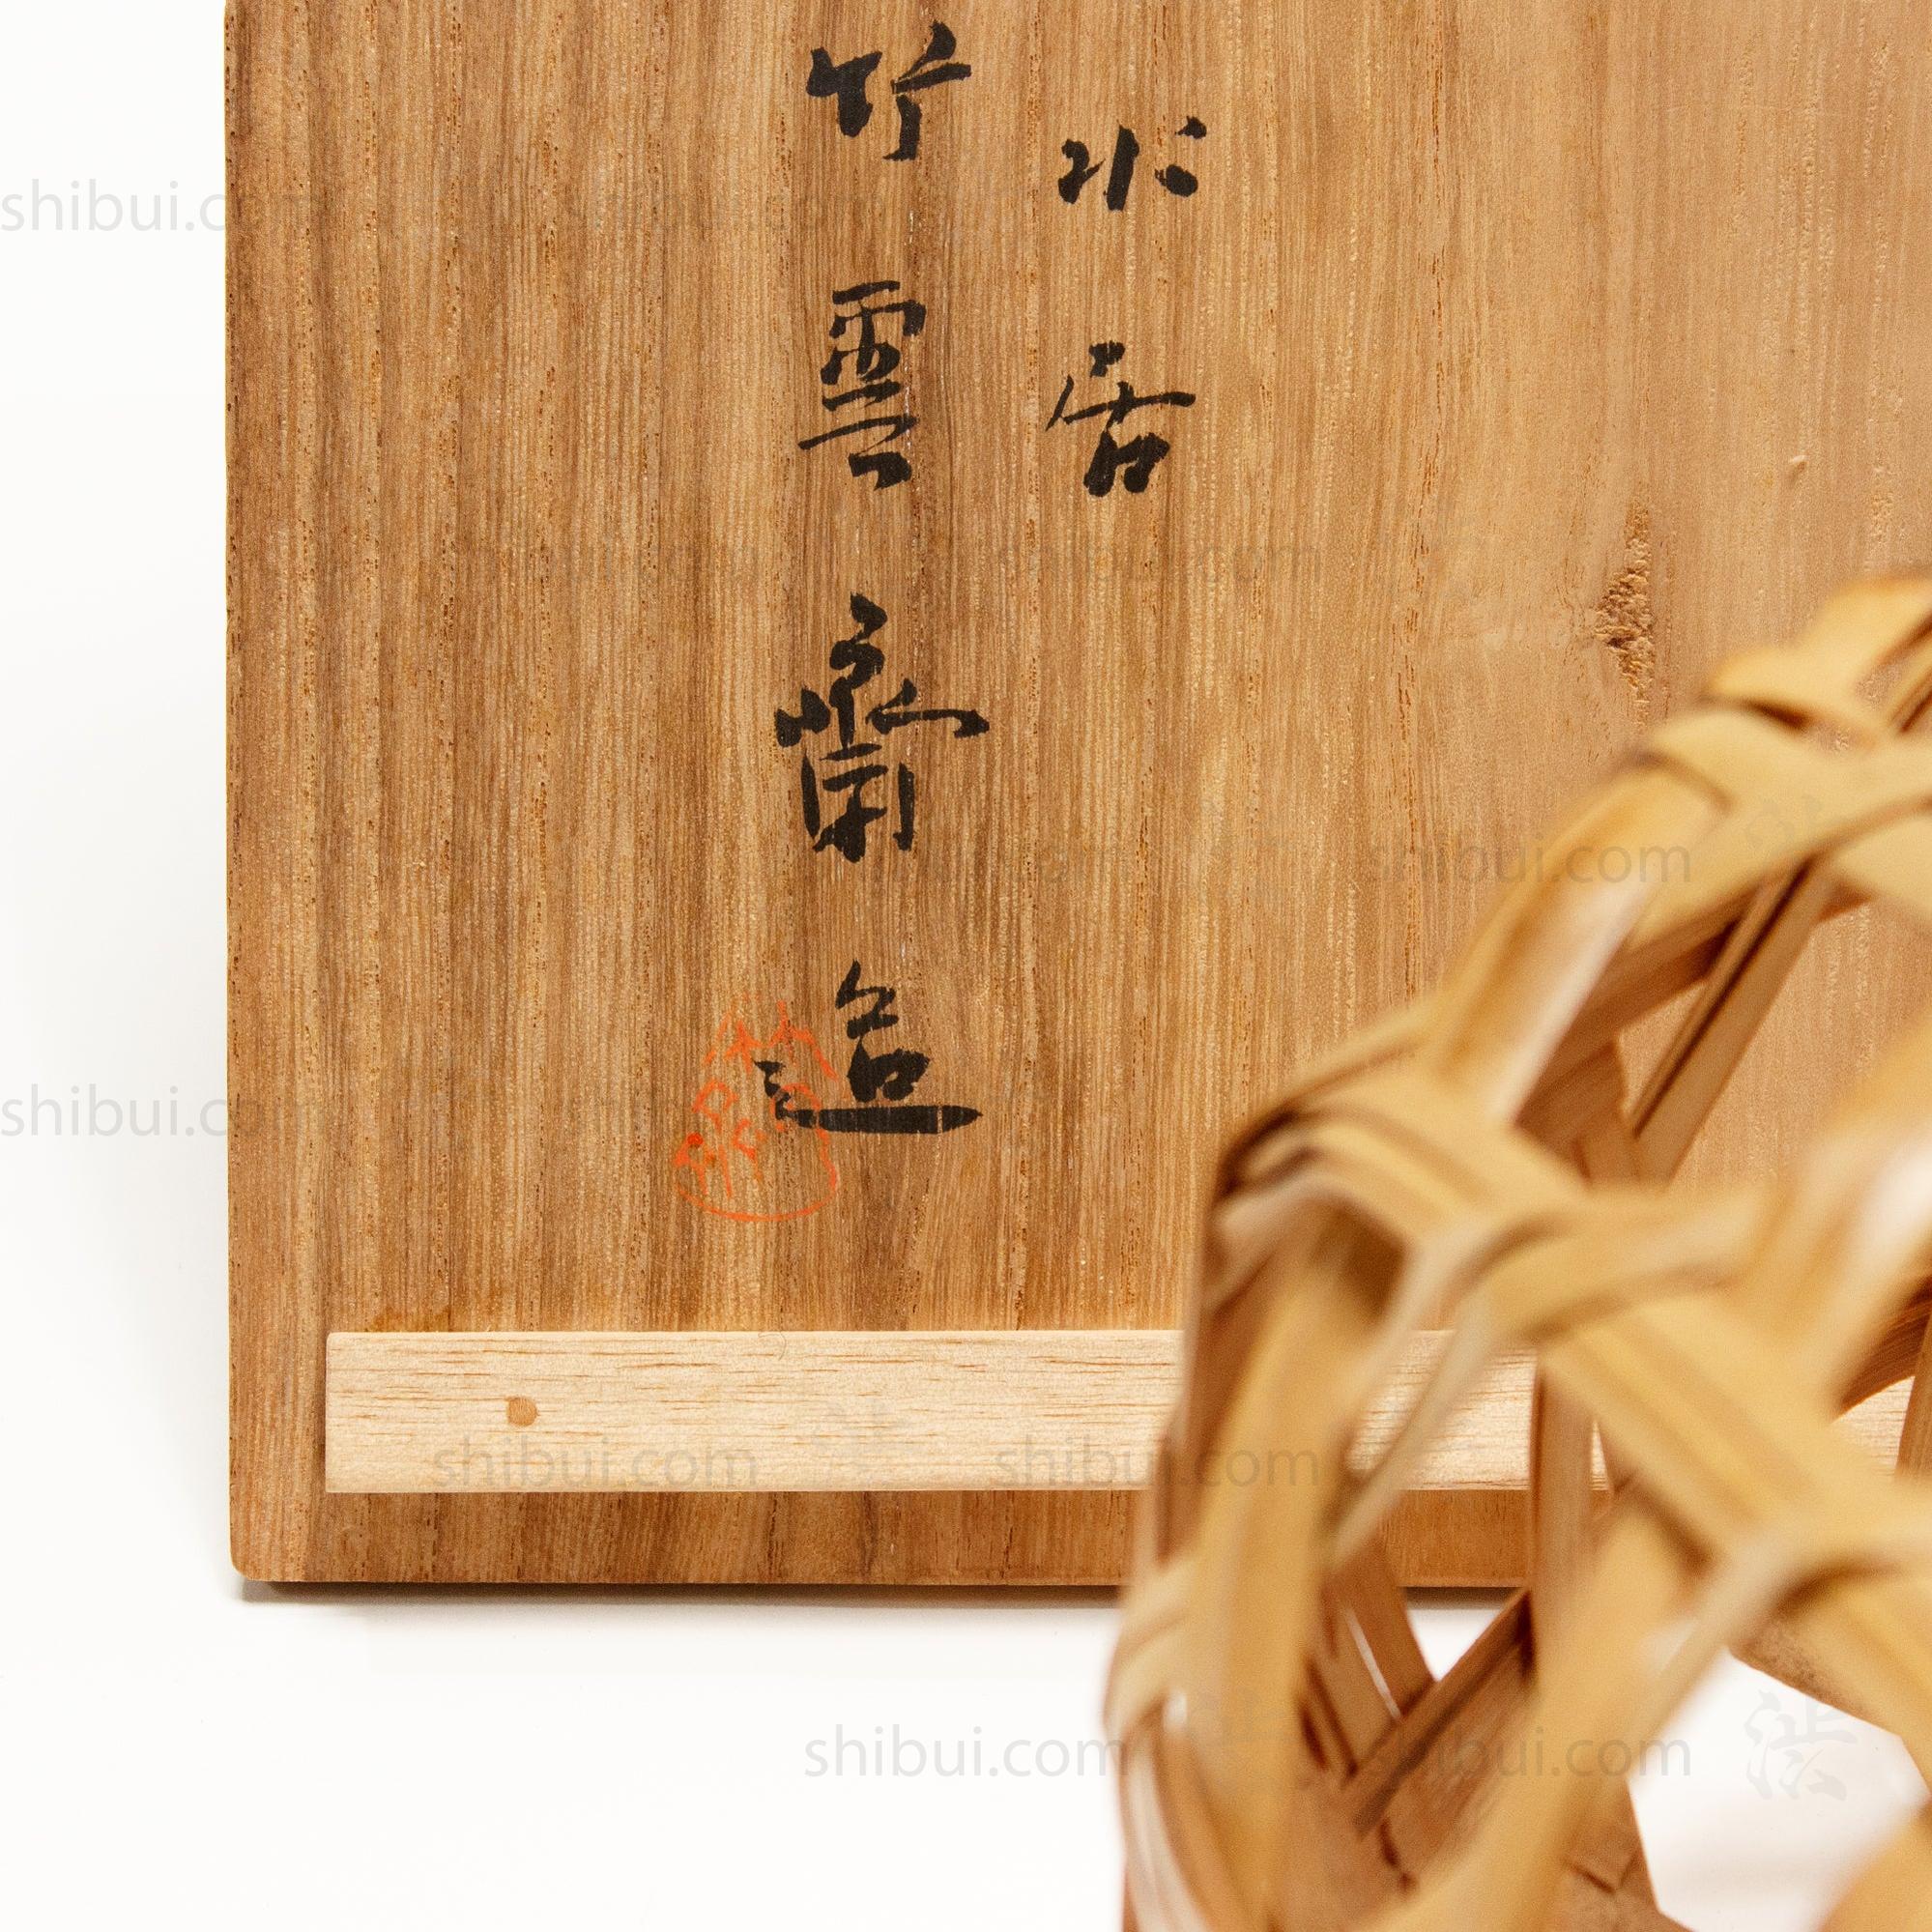 水居
竹雲齋造
shibui.com
shibui.com
shibui.com
shibui.com
shibui.com
shibui.com
shibui.com
shibui.com